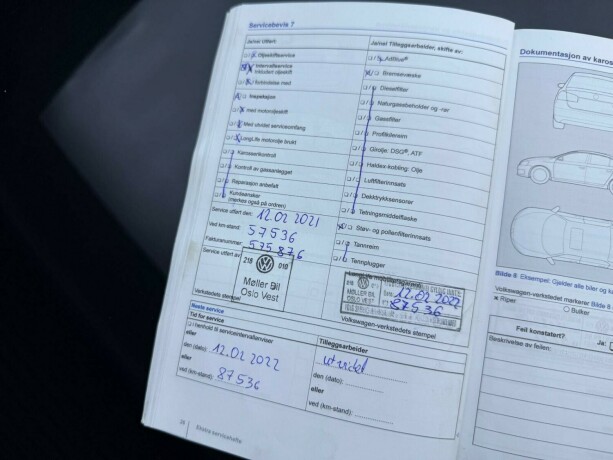 Servicebevis 7
Ja/nei Utført:
Ja/nei Tilleggsarbeider, skiftes av:
Oljeskiftservice
AdBlue®
Intervallservice
inkludert oljeskift
Bremsevæske
Dieselfilter
Inspeksjon
Naturgassbeholder og -rør
med motoroljeskift
Gassfilter
Med utvidet serviceomfang
Profildensim
LongLife motorolje brukt
Girolje: DSG®, ATF
Karosserikontroll
Haldex-kobling: Olje
Kontroll av gassanlegget
Luftfilterinnsats
Reparasjon anbefalt
Dekktrykksensorer
Kundeønsker
(merkes også på ordren)
Tetningsmiddelflaske
Service utført den: 12.02 2021
Støv- og pollenfilterinnsats
Ved km-stand: 57536
Tannreim
Fakturanummer: 575876
Tennplugger
Service utført av
218 010
Møller Bil
Oslo Vest
Verkstedets stempel
218
MØLLER BIL
OSLO VEST
12.02 2022
87536
Volkswagen-verkstedets stempel
Neste service
Tid for service
Tilleggsarbeider
I henhold til serviceintervallanviser
eller
utvidet
den (dato): 12.02 2022
den (dato):
eller
eller
ved (km-stand): 87536
ved (km-stand):
Ekstra servicehefte
Dokumentasjon av karos
Bilde 8 Eksempel: Gjelder alle biler og ka
Volkswagen-verkstedet markerer Bilde 8
Riper
Bulker
Feil konstatert?
Ja:
Beskrivelse av feilen: